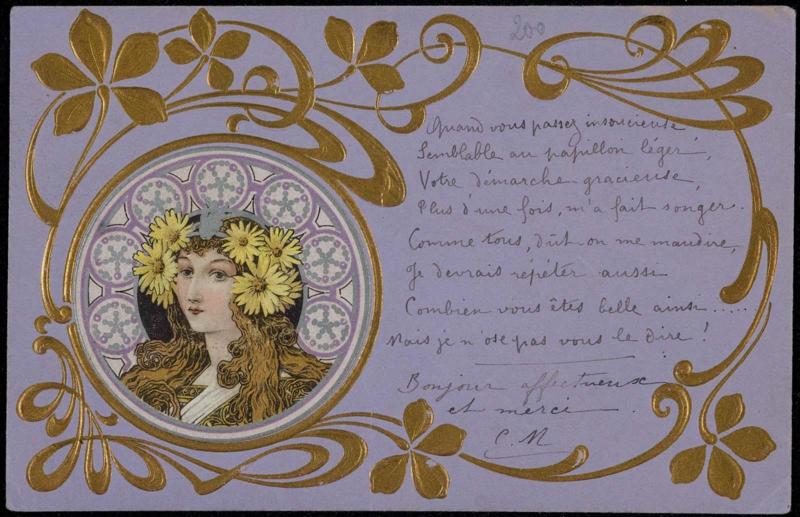 200
Quand vous passez insoucieuse
Semblable au papillon léger,
Votre démarche gracieuse,
Plus d'une fois, m'a fait songer.
Comme tous, dût on me maudire,
Je devrais répéter aussi
Combien vous êtes belle ainsi.....
Mais je n'ose pas vous le dire !
Bonjour affectueux
et merci.
C. M